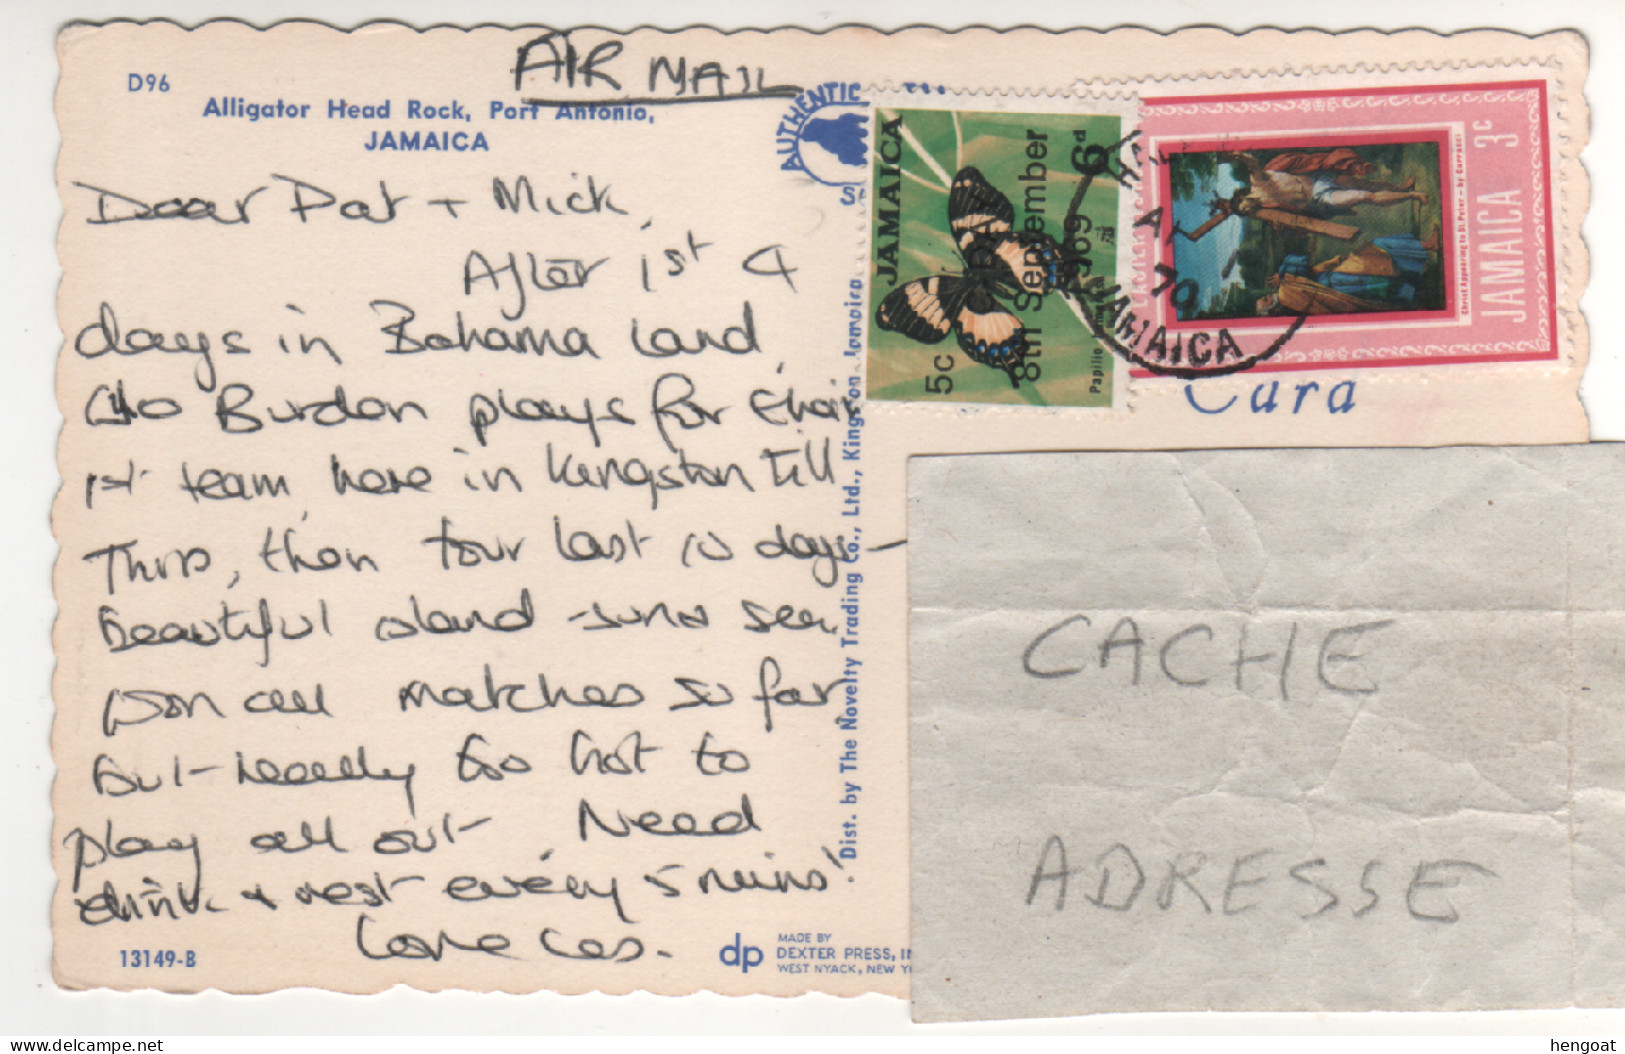 AIR MAIL
D96
Alligator Head Rock, Port Antonio,
JAMAICA
Dear Pat + Mick,
After 1st 4
days in Bahama land,
Burdon plays for their
1st team, here in Kingston till
Thurs, then tour last 10 days -
beautiful island - sun & sea.
Won all matches so far,
but really too hot to
play all out. Need
drink + rest every 5 mins!
Love Les.
13149-B
dp
MADE BY
DEXTER PRESS, IN
WEST NYACK, NEW Y
Dist. by The Novelty Trading Co., Ltd., Kingston, Jamaica
AUTHENTIC
JAMAICA
6d
C-DAY
8th September
1969
5c
Papilio
JAMAICA 3c
Christ Appearing to St. Peter - by Carracci
70
JAMAICA
Card
CACHE
ADRESSE
hengoat